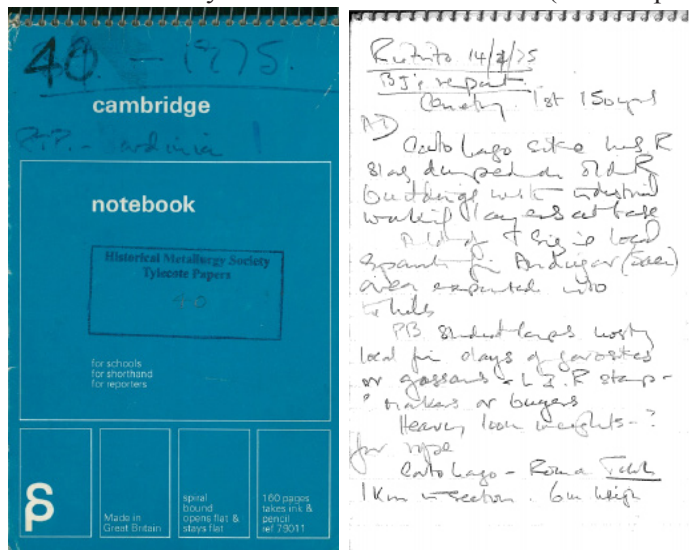 40. - 1975.
cambridge
R.P. - Sardinia 1
notebook
Historical Metallurgy Society
Tylecote Papers
40
for schools
for shorthand
for reporters
Made in
Great Britain
spiral
bound
opens flat &
stays flat
160 pages
takes ink &
pencil
ref 79011
Riotinto 14/ /75
BJ's report
Cemetery. 1st 150 yrs
AD
Corta Lago site has R
slag dumped on old R
buildings with industrial
working layers at base
A lot of sig is local
Spanish fr Andujar (Jaen)
area exported into
hills
PB student lamps mostly
local for days of jarosites
or gossans - L I.R stamp -
? makers or buyers
Heavy loom weights - ?
for rope
Corta Lago - Roma
1 Km section. 6m high